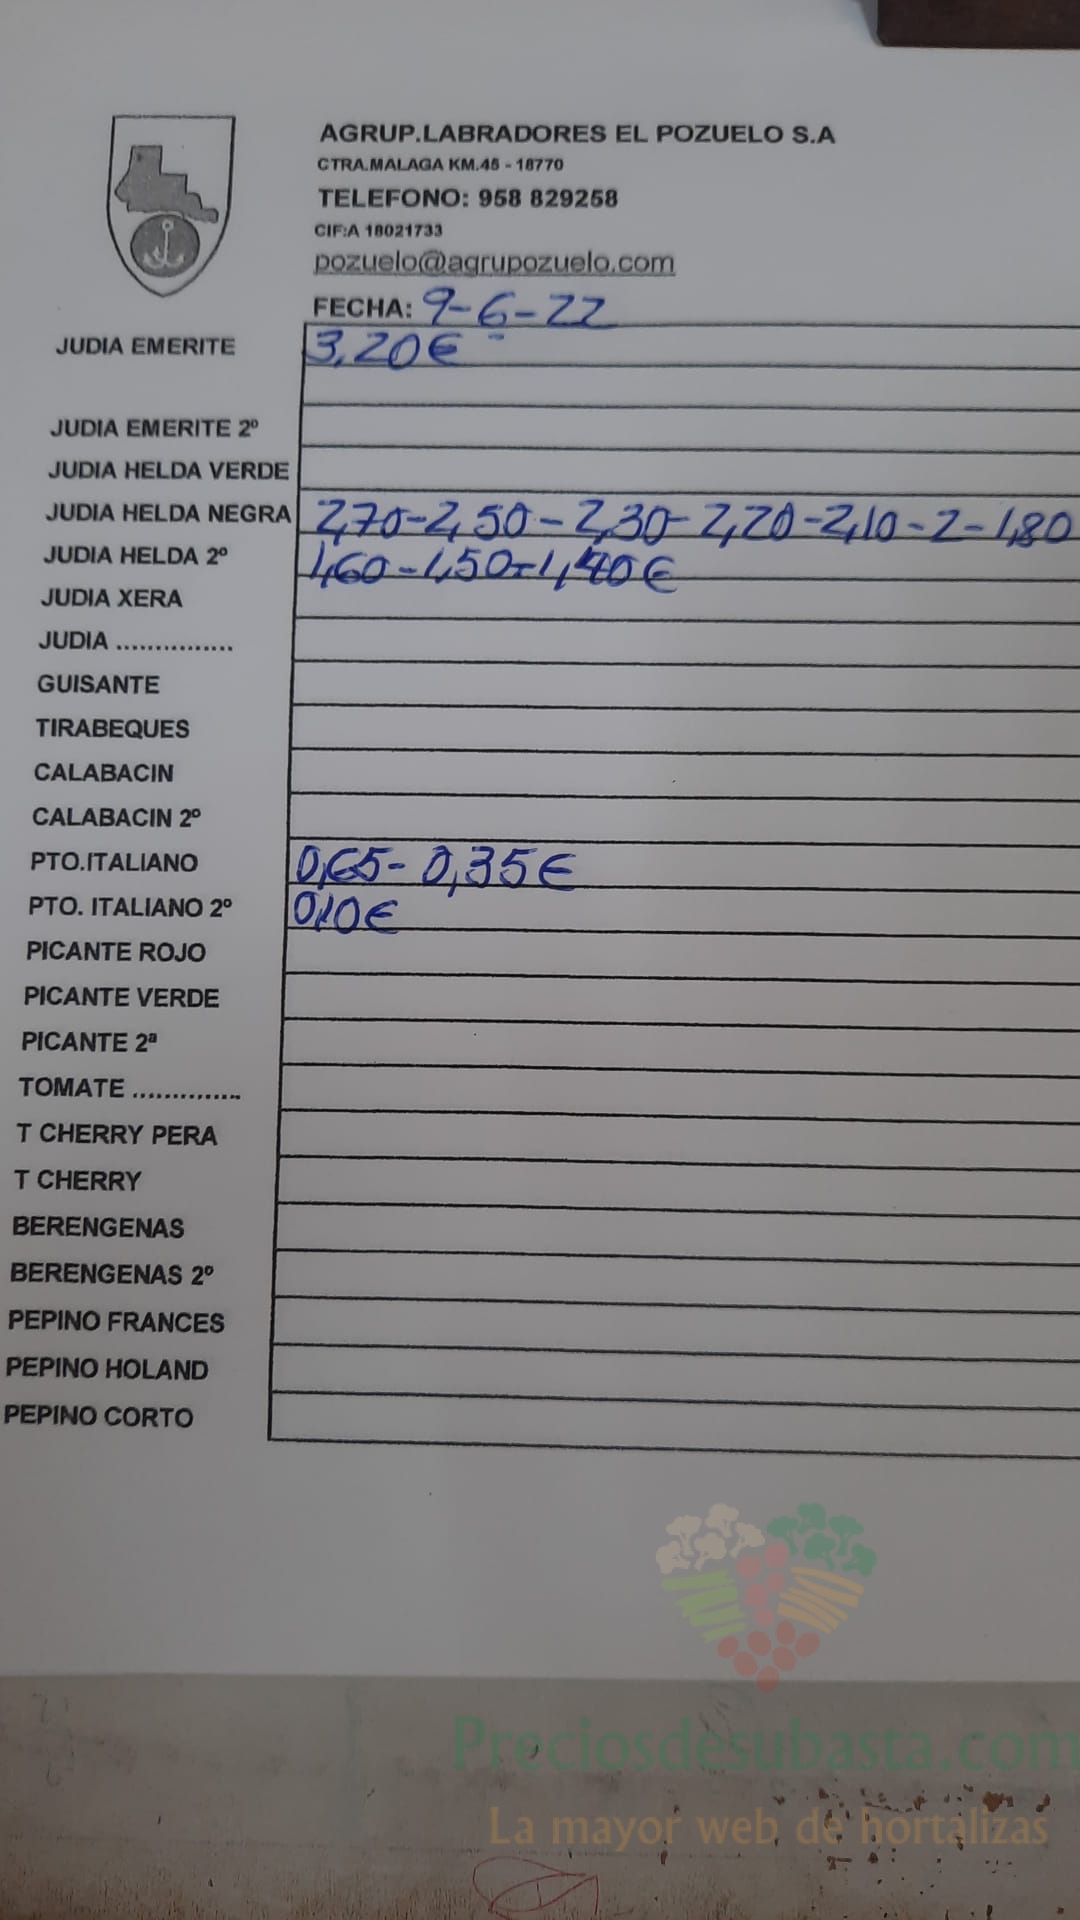 AGRUP.LABRADORES EL POZUELO S.A
CTRA.MALAGA KM.45 - 18770
TELEFONO: 958 829258
CIF:A 18021733
pozuelo@agrupozuelo.com
FECHA: 9-6-22
JUDIA EMERITE 3,20€
JUDIA EMERITE 2º
JUDIA HELDA VERDE
JUDIA HELDA NEGRA 2,70-2,50-2,30-2,20-2,10-2-1,80
JUDIA HELDA 2º 1,60-1,50-1,40€
JUDIA XERA
JUDIA ...............
GUISANTE
TIRABEQUES
CALABACIN
CALABACIN 2º
PTO.ITALIANO 0,65-0,35€
PTO. ITALIANO 2º 0,10€
PICANTE ROJO
PICANTE VERDE
PICANTE 2ª
TOMATE ..............
T CHERRY PERA
T CHERRY
BERENGENAS
BERENGENAS 2º
PEPINO FRANCES
PEPINO HOLAND
PEPINO CORTO
Preciosdesubasta.com
La mayor web de hortalizas